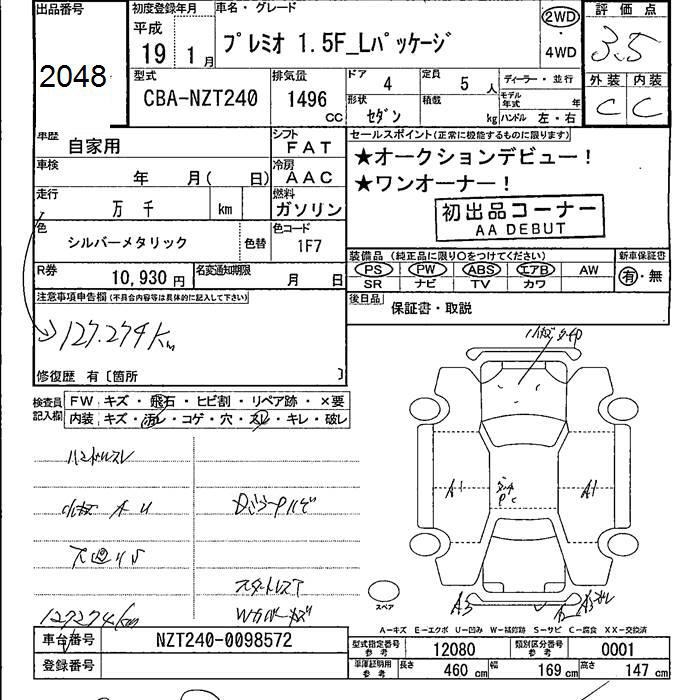 出品番号
2048
初度登録年月
平成
19 1月
車名・グレード
プレミオ 1.5F_Lパッケージ
2WD
・
4WD
評価点
3.5
外装 内装
C C
型式
CBA-NZT240
排気量
1496
CC
ドア 4
定員 5 人
形状 セダン
積載 kg
ディーラー・並行
モデル年式 年
ハンドル 左・右
車歴 自家用
シフト FAT
車検 年 月( 日)
冷房 AAC
走行 万 千 km
燃料 ガソリン
色 シルバーメタリック
色替
色コード 1F7
R券 10,930 円
名変通知期限 月 日
セールスポイント(正常に機能するものに限ります)
★オークションデビュー!
★ワンオーナー!
初出品コーナー
AA DEBUT
装備品 (純正品に限り○をつけてください)
PS PW ABS エアB AW
SR ナビ TV カワ
新車保証書
有・無
後日品 保証書・取説
注意事項申告欄(不具合内容等は具体的に記入して下さい)
127.274Km
修復歴 有〔箇所 〕
検査員記入欄
FW キズ・飛石・ヒビ割・リペア跡・×要
内装 キズ・汚レ・コゲ・穴・スレ・キレ・破レ
ハンドルスレ
小キズ A U
下廻りS
127274km
A1
A1
A3
スペア
A-キズ E-エクボ U-凹み W-補修跡 S-サビ C-腐食 XX-交換済
車台番号 NZT240-0098572
登録番号
型式指定番号 参考 12080
類別区分番号 参考 0001
車庫証明用 参考 長さ 460 cm 幅 169 cm 高さ 147 cm